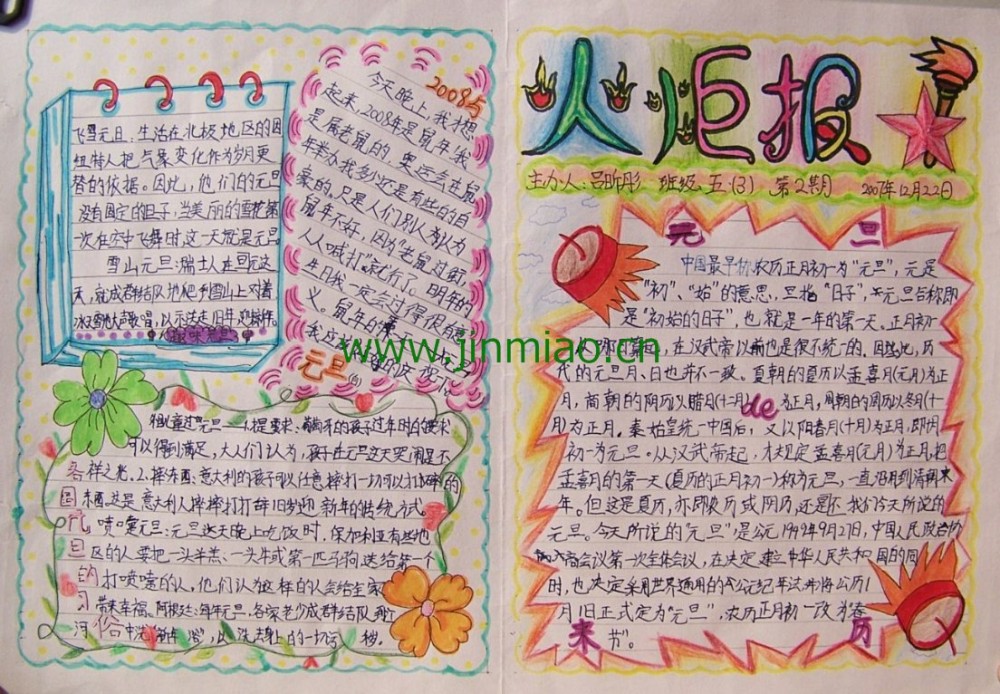 飞雪元旦:生活在北极地区的因
纽特人把气象变化作为岁月更
替的依据。因此,他们的元旦
没有固定的日子,当美丽的雪花第
一次在空中飞舞时,这一天就是元旦。
雪山元旦:瑞士人在元旦这
天,就成群结队地爬到雪山上,对着
冰雪放声歌唱,以示送走旧年,迎接新年。
趣味元旦
2008与
今天晚上,我才想
起来,2008年是鼠年!我
是属老鼠的,奥运会在鼠
年举办我多少还是有些的自
豪的,只是人们别人为认为
鼠年不好,因为"老鼠过街,
人人喊打"就行了。明年的
生日我一定会过得很有意
义。鼠年的
元旦
可以得到满足,大人们认为,孩子在元旦这天哭闹是不
祥之兆。2.摔东西:意大利的孩子可以任意摔打一切可以打碎的
东西,这是意大利人摔摔打打辞旧岁迎新年的传统方式。
喷嚏元旦:元旦这天晚上吃饭时,保加利亚有些地
区的人要把一头羊羔、一头牛或第一匹马驹送给第一个
打喷嚏的人,他们认为这样的人会给全家
带来幸福。阿根廷:每年元旦,各家老少成群结队到江
河中
各国元旦的习俗
火炬报
主办人:吕昕彤 班级 五(3) 第2期 2007年12月22日
元旦
中国最早称农历正月初一为"元旦",元是
"初"、"始"的意思,旦指"日子",元旦合称即
是"初始的日子",也就是一年的第一天。正月初一
在汉武帝以前也是很不统一的。因此,历
代的元旦月、日也并不一致。夏朝的夏历以孟喜月(元月)为正
月,商朝的阴历以腊月(十二月)为正月,周朝的周历以冬月(十一
月)为正月。秦始皇统一中国后,又以阳春月(十月)为正月,即十月
初一为元旦。从汉武帝起,才规定孟喜月(元月)为正月,把
孟喜月的第一天(夏历的正月初一)称为元旦,一直沿用到清朝末
年。但这是夏历,亦即农历或阴历,还不是我们今天所说的
元旦。今天所说的"元旦"是公元1949年9月27日,中国人民政治协
商会议第一次全体会议,在决定建立中华人民共和国的同
时,也决定采用世界通用的公元纪年法,并将公历1
月1日正式定为"元旦",农历正月初一改为"春
节"。
de
来历
www.jinmiao.cn